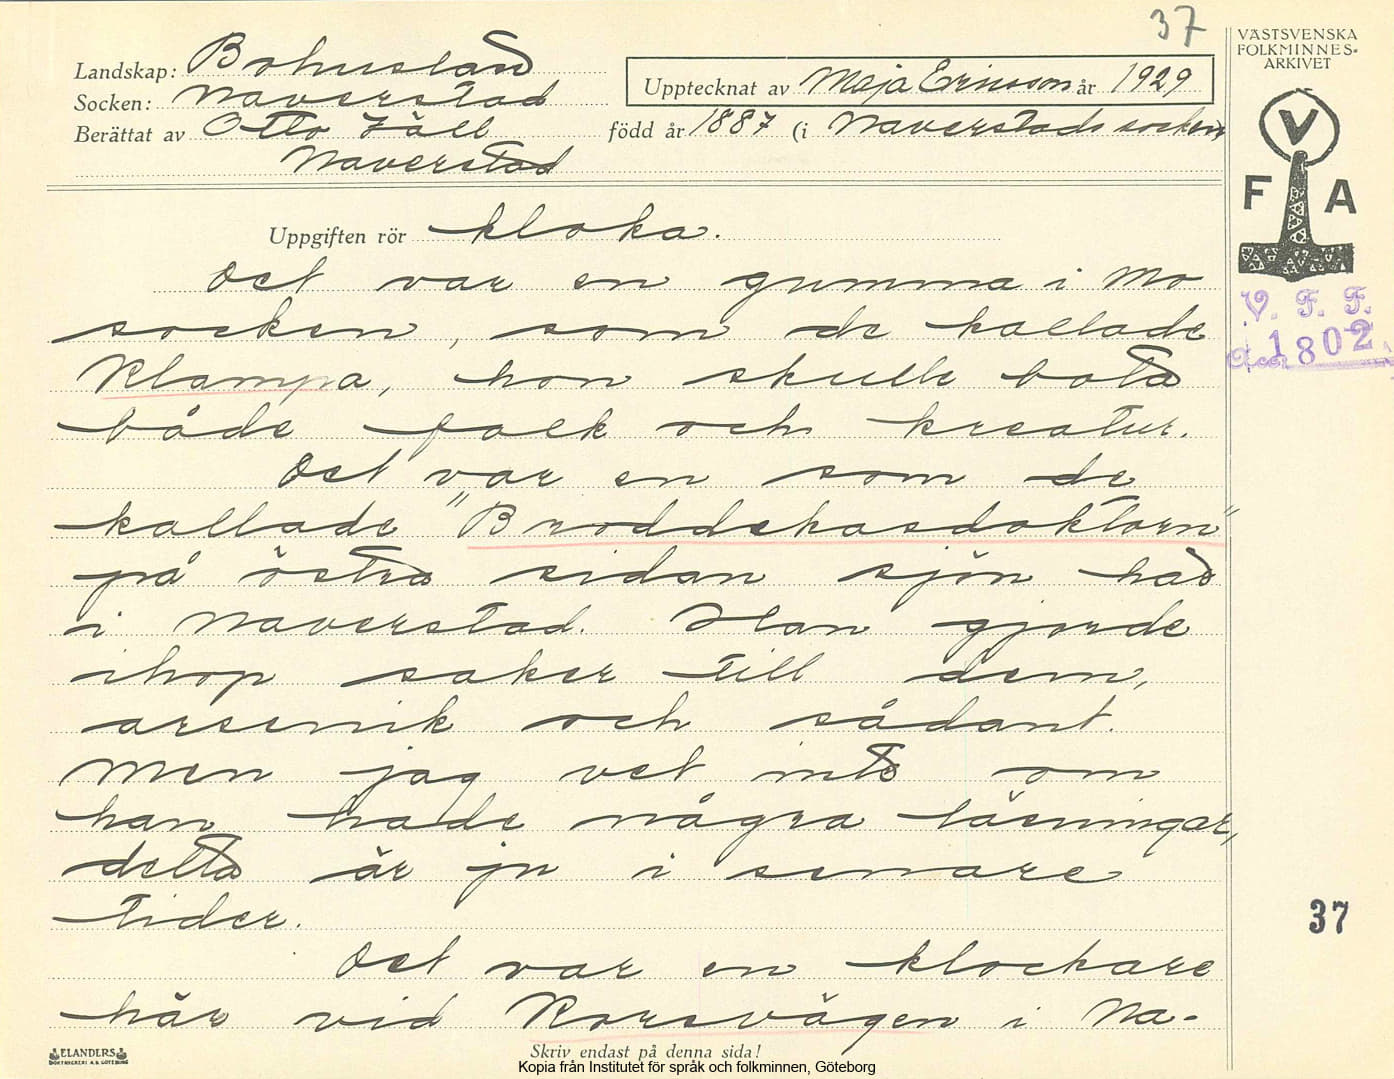 37
VÄSTSVENSKA
FOLKMINNES-
ARKIVET
Landskap: Bohuslän
Upptecknat av Maja Ericsson år 1929
Socken: Naverstad
Berättat av Otto Häll född år 1887 (i Naverstads socken)
Naverstad
V
F A
Uppgiften rör kloka.
V. F. F.
Acc. 1802
Det var en gumma i Mo
socken, som de kallade
Klampa, hon skulle bota
både folk och kreatur.
Det var en som de
kallade "Broddehasdoktorn"
på östra sidan sjön här
i Naverstad. Han gjorde
ihop saker till dem,
arsenik och sådant.
Men jag vet inte om
han hade några läsningar,
detta är ju i senare
tider.
37
Det var en klockare
här vid Korsvägen i Na-
ELANDERS
BOKTRYCKERI A.B. GÖTEBORG
Skriv endast på denna sida!
Kopia från Institutet för språk och folkminnen, Göteborg